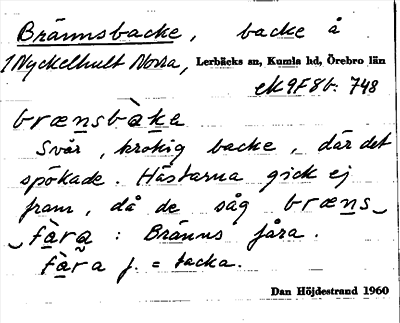 Brännsbacke, backe å
1 Nyckelhult Norra, Lerbäcks sn, Kumla hd, Örebro län
ek 9F8b: 748
brænsbàka
Svår, krokig backe, där det
spökade. Hästarna gick ej
fram, då de såg bræns
fàra : Bränns fåra.
fàra f. = tacka.
Dan Höjdestrand 1960